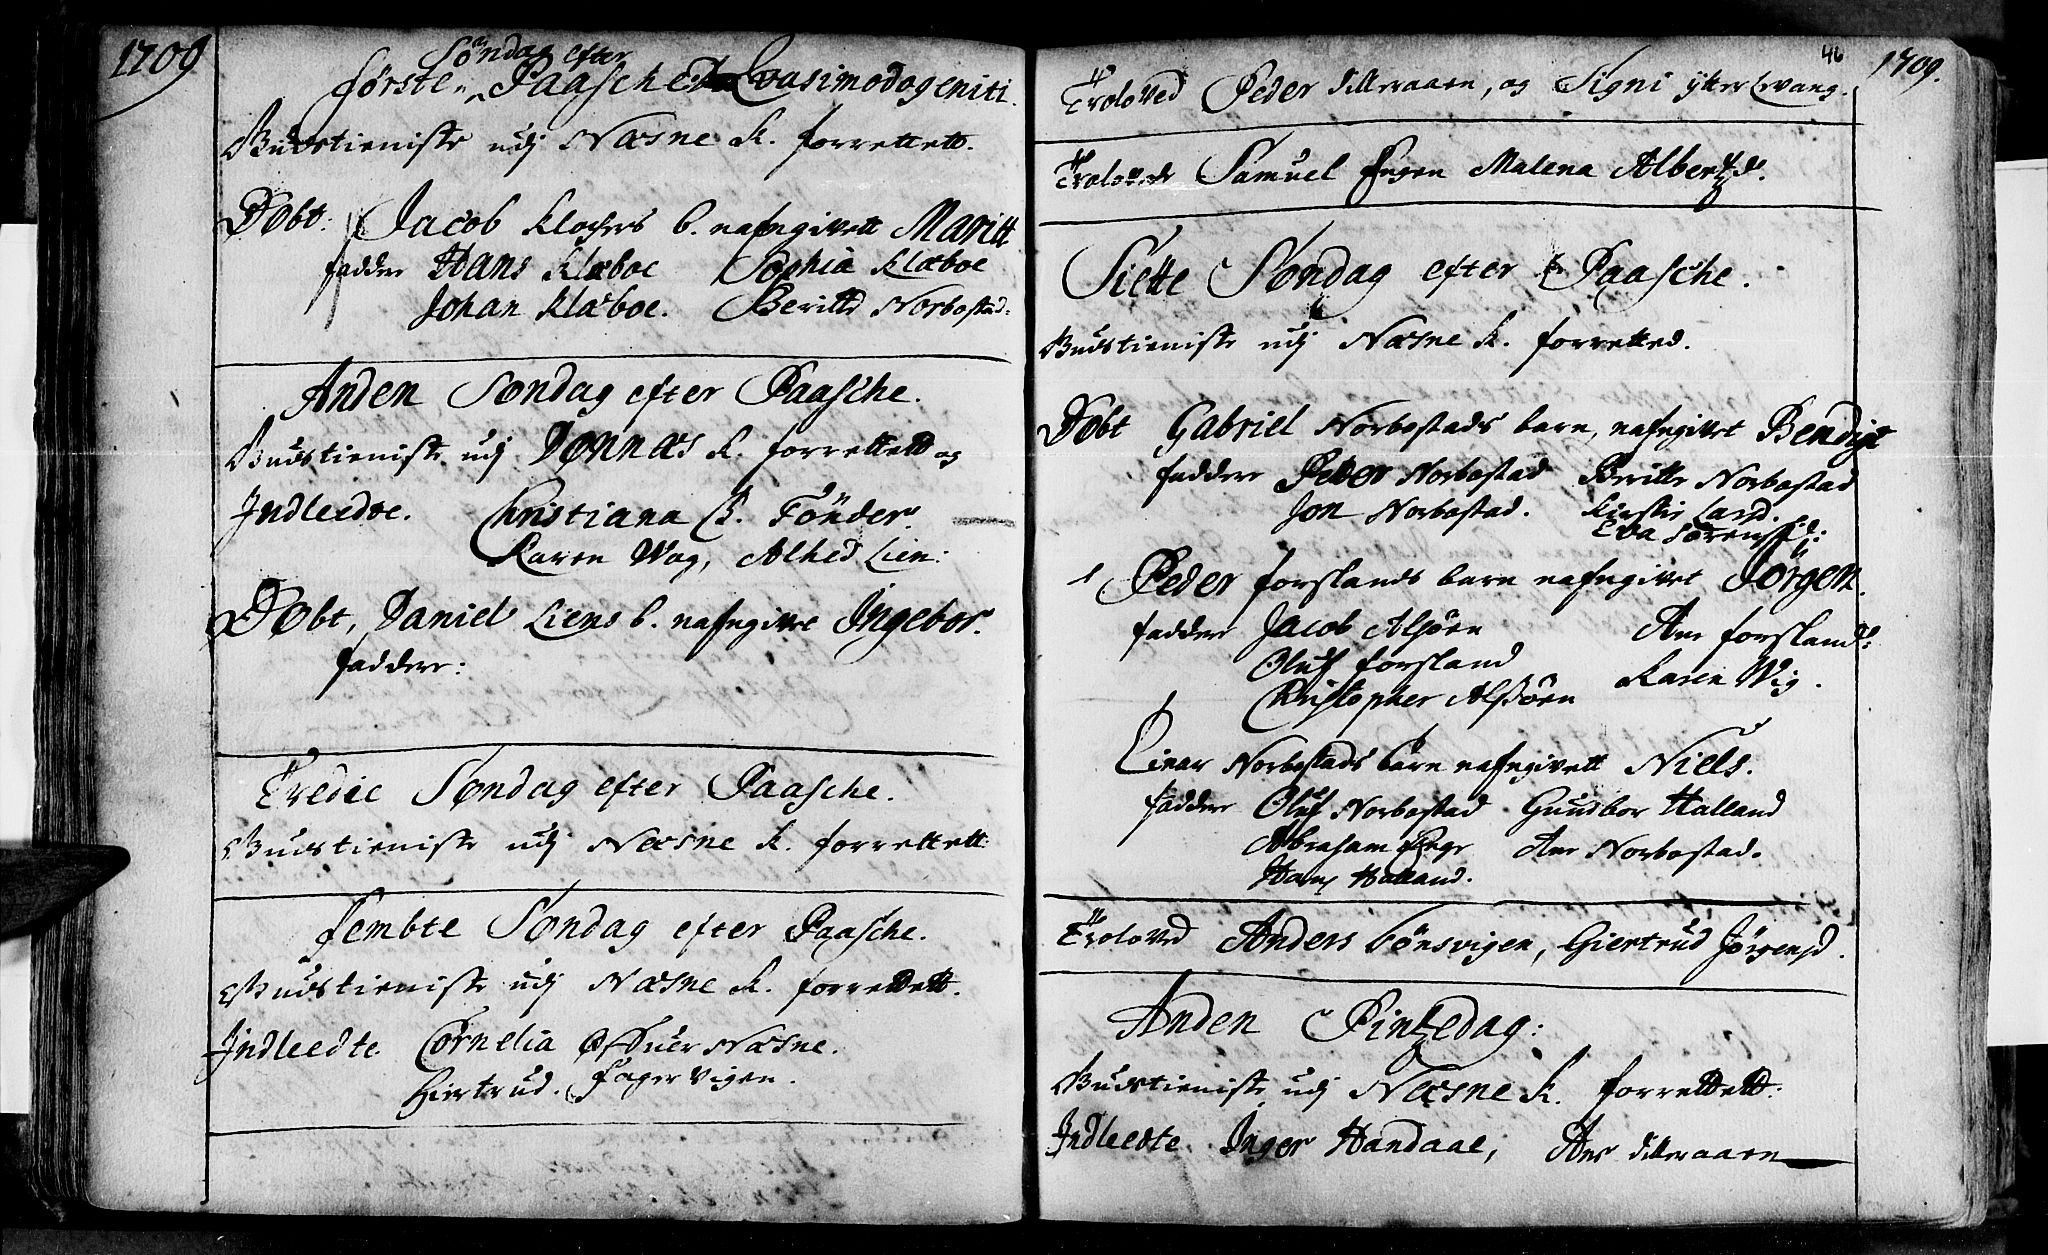 1709
Søndag efter
første Paasche Qvasimodogeniti.
Gudstieniste udj Næsne K. forrettett.
Døbt. Jacob Klochers b. nafngivett Maritt
fadder Hans Klæboe Sophia Klæboe
Johan Klæboe. Beritte Norbostad
Anden Søndag efter Paasche.
Gudstieniste udj Dønnæs K. forrettett og
Indleedte. Christiana B. Tönder.
Karen Wog, Alhed Lien:
Døbt, Daniel Liens b. nafngivet Ingebor.
faddere:
Tredie Søndag efter Paasche.
Gudstieniste udj Næsne K. forrettett
Fembte Søndag efter Paasche.
Gudstieniste udj Næsne K. forrettett.
Indleedte Cornelia Næsne.
Giertrud Fagervigen.
46
1709.
Troloved Peder Tilleraaen, og Signi ytter Levang.
Trolovede Samuel Engen Malena Albertzd.
Siette Søndag efter Paasche.
Gudstieniste udj Næsne K. forretted.
Døbt Gabriel Norbostads barn, nafngivet Bendigt
faddere Peder Norbostad Beritte Norbostad
Jon Norbostad. Kirstie Land.
Eva Sörensd:
1 Peder forslands barn nafngivet Jörgen.
faddere Jacob Alsöen Ane forsland
Oluf forsland Karen Wig.
Christopher Alsöen
Einar Norbostads barn nafngivett Niels.
faddere Oluf Norbostad Gundbor Halland
Abraham Ane Norbostad.
Hans Halland.
Troloved Anders bönsvigen, Giertrud Jörgensd.
Anden Pintzedag:
Gudstieniste udj Næsne K. forrettett:
Indleedte Inger Handaal, Ane Tilleraaen